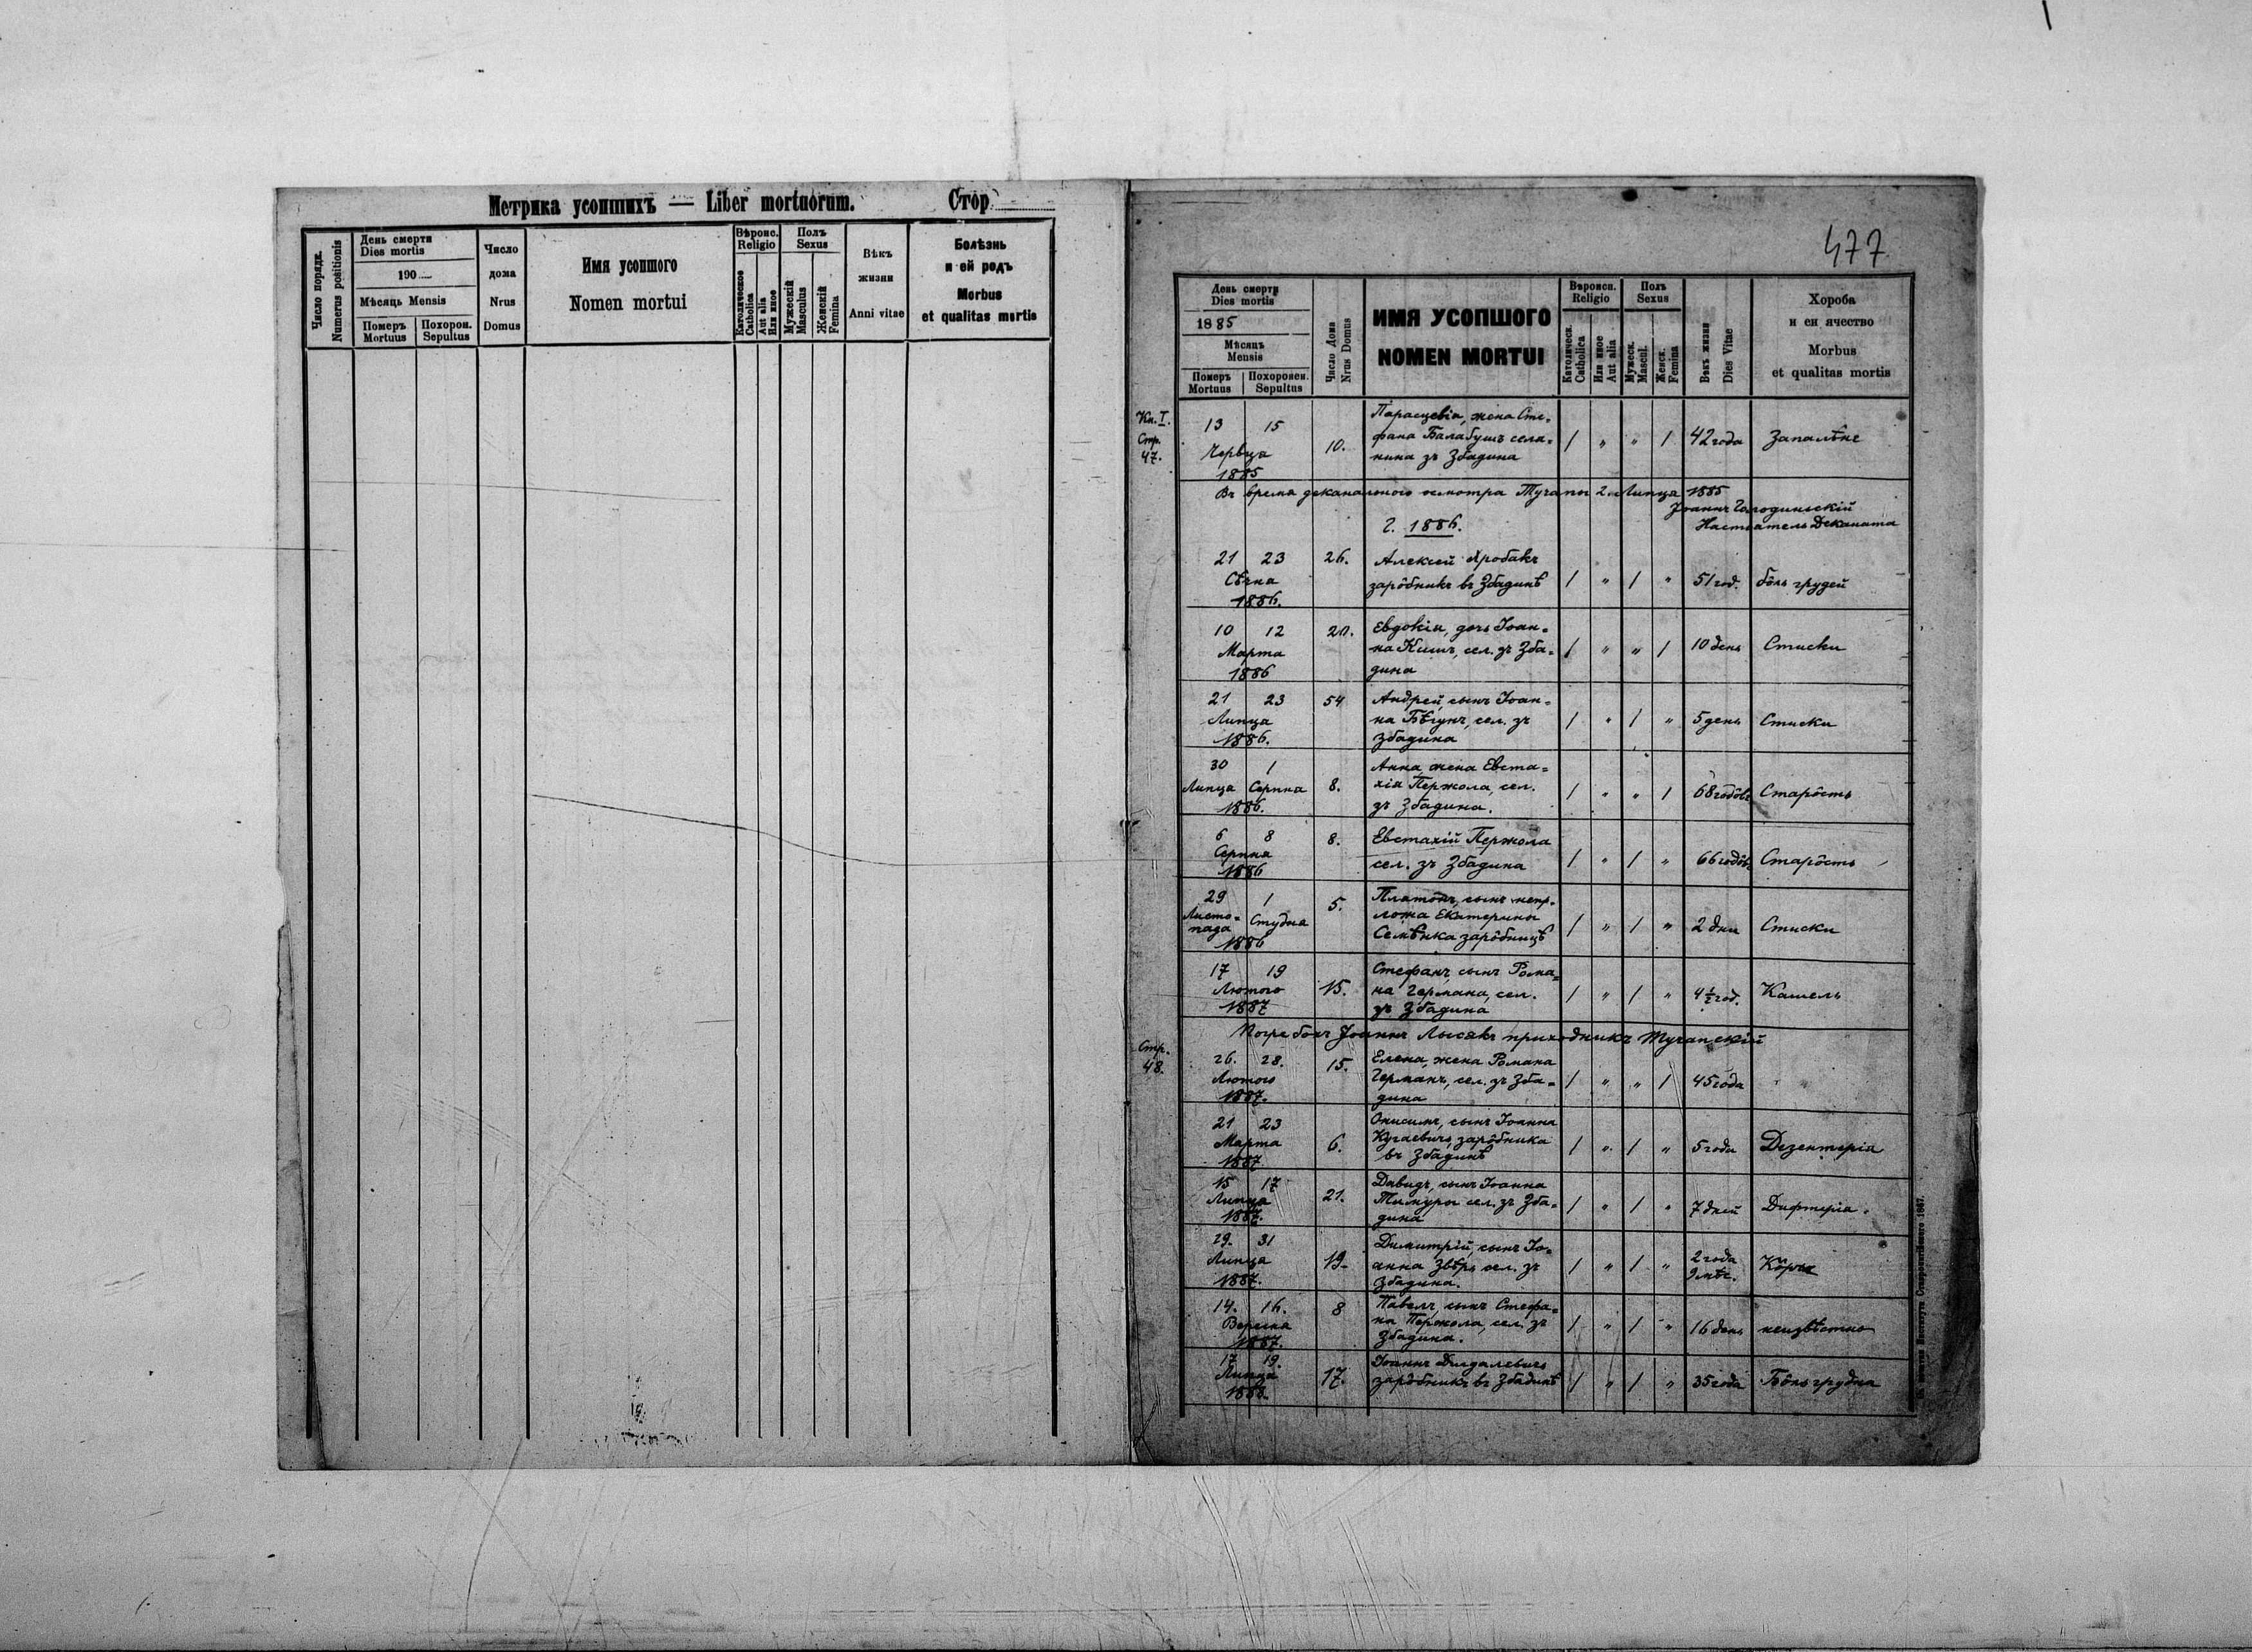 Метрика усопшихъ — Liber mortuorum. Стор
Число порядк.
Numerus positionis
День смерти
Dies mortis
190
Мѣсяць Mensis
Померъ
Mortuus
Похорон.
Sepultus
Число
дома
Nrus
Domus
Имя усопшого
Nomen mortui
Вѣроис.
Religio
Католическое
Catholica
Aut alia
Или иное
Полъ
Sexus
Мужескій
Masculus
Женскій
Femina
Вѣкъ
жизни
Anni vitae
Болѣзнь
и ей родъ
Morbus
et qualitas mortis
477
День смерти
Dies mortis
1885
Мѣсяцъ
Mensis
Померъ
Mortuus
Похоронен.
Sepultus
Число Дома
Nrus Domus
ИМЯ УСОПШОГО
NOMEN MORTUI
Вѣроисп.
Religio
Католическ.
Catholica
Или иное
Aut alia
Полъ
Sexus
Мужеск.
Mascul.
Женск.
Femina
Вѣкъ жизни
Dies Vitae
Хороба
и еи ячество
Morbus
et qualitas mortis
Кн. I.
Стр.
47.
13 15
Червца
1885
10.
Параcцевія, жена Сте=
фана Балабушъ села=
нина зъ Збадина
/ " " / 42 года Запалѣне
Въ время деканального осмотра Тучапы 2 Липца 1885
Іоаннъ Городиньскій
Настоятель Деканата
г. 1886.
21 23
Сѣчна
1886.
26.
Алексей Хробакъ
зарôбникъ въ Збадинѣ
/ " / " 51 год. бôль грудей
10 12
Марта
1886
20.
Евдокіа, дочь Іоан=
на Кишъ, сел. зъ Зба=
дина
/ " " / 10 день Стиски
21 23
Липца
1886.
54
Андрей, сынъ Іоан=
на Бѣгунъ, сел. зъ
Збадина
/ " / " 5 день Стиски
30 1
Липца Серпна
1886.
8.
Анна жена Евста=
хія Пержола, сел.
зъ Збадина.
/ " " / 68 годôвъ Старôсть
6 8
Серпня
1886
8.
Евстахій Пержола
сел. зъ Збадина
/ " / " 66 годôвъ Старôсть
29 1
Листо=
пада Студня
1886
5.
Платонъ, сынъ непр.
ложа Екатерины
Семѣнка зарôбницѣ
/ " / " 2 дни Стиски
17 19
Лютого
1887
15.
Стефанъ, сынъ Рома=
на Германа, сел.
зъ Збадина
/ " / " 4½ год. Кашель
Погребалъ Іоаннъ Лысякъ приходникъ Тучапскій
Стр.
48.
26. 28.
Лютого
1887.
15.
Елена, жена Романа
Германъ, сел. зъ Зба=
дина
/ " " / 45 года "
21 23
Марта
1887
6.
Онисимъ, сынъ Іоанна
Кугаевичъ, зарôбника
въ Збадинѣ
/ " / " 5 года Дезентерія
15 17
Липца
1887.
21.
Давидъ, сынъ Іоанна
Тимуры сел. зъ Зба=
дина
/ " / " 7 дней Дифтерія.
29. 31
Липца
1887.
19.
Димитрій, сынъ Іо=
анна Звѣръ сел. зъ
Збадина.
/ " / " 2 года
9 мѣс. Кôръ
14. 16.
Вересня
1887.
8
Павелъ, сынъ Стефа=
на Пержола, сел. зъ
Збадина.
/ " / " 16 день неизвѣстно
17 19.
Липца
1888.
17.
Іоаннъ Дидалевичъ
зарôбникъ въ Збадинѣ
/ " / " 35 года Бôль грудна